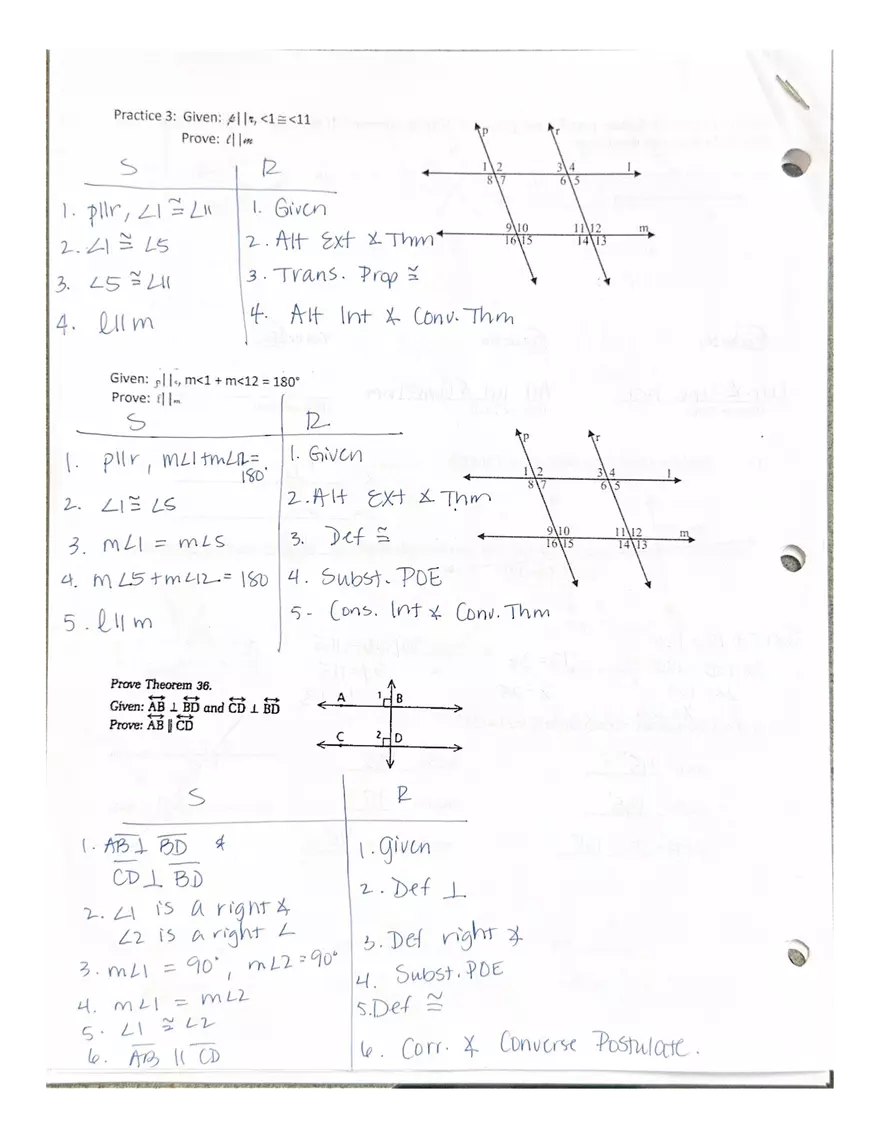 Practice 3: Given: p||r, <1≅<11
Prove: ℓ||m
S R
1. p||r, ∠1 ≅ ∠11 1. Given
2. ∠1 ≅ ∠5 2. Alt Ext ∡ Thm
3. ∠5 ≅ ∠11 3. Trans. Prop ≅
4. ℓ||m 4. Alt Int ∡ Conv. Thm
p r
1 2 3 4 l
8 7 6 5
9 10 11 12 m
16 15 14 13
Given: p||r, m<1 + m<12 = 180°
Prove: ℓ||m
S R
1. p||r, m∠1+m∠12= 180° 1. Given
2. ∠1 ≅ ∠5 2. Alt Ext ∡ Thm
3. m∠1 = m∠5 3. Def ≅
4. m∠5+m∠12= 180 4. Subst. POE
5. ℓ||m 5- Cons. Int ∡ Conv. Thm
p r
1 2 3 4 l
8 7 6 5
9 10 11 12 m
16 15 14 13
Prove Theorem 36.
Given: AB ⊥ BD and CD ⊥ BD
Prove: AB ∥ CD
A 1 B
C 2 D
S R
1. AB ⊥ BD & 1. given
CD ⊥ BD
2. ∠1 is a right ∡ 2. Def ⊥
∠2 is a right ∠
3. m∠1 = 90°, m∠2=90° 3. Def right ∡
4. m∠1 = m∠2 4. Subst. POE
5. ∠1 ≅ ∠2 5. Def ≅
6. AB || CD 6. Corr. ∡ Converse Postulate.